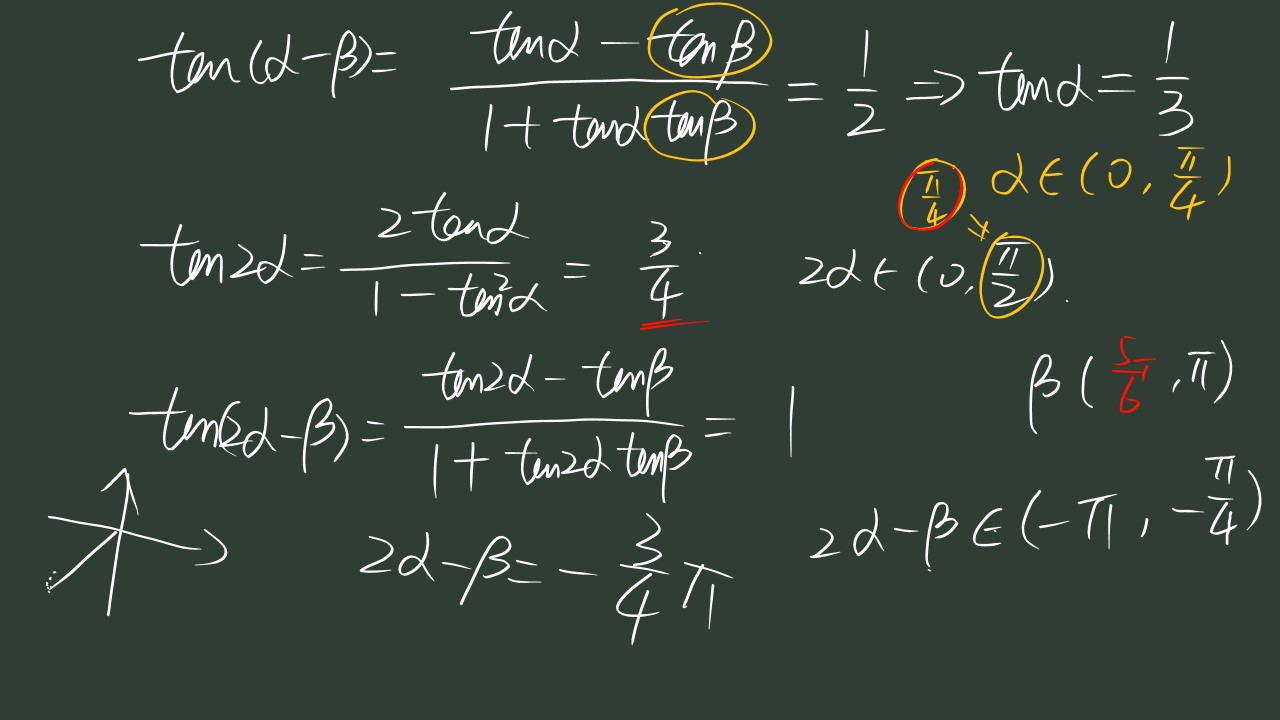 tan(α-β)= (tanα - tanβ)/(1 + tanα tanβ) = 1/2 ⇒ tanα = 1/3
π/4 α∈(0, π/4)
tan2α = (2tanα)/(1 - tan²α) = 3/4 . 2α∈(0, π/2).
β(5/6, π)
tan(2α-β) = (tan2α - tanβ)/(1 + tan2α tanβ) = 1
2α-β = -3/4 π 2α-β∈(-π, -π/4)